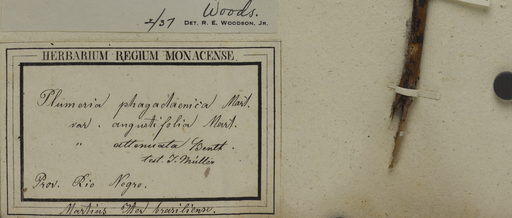 Woods.
2/37 DET. R. E. WOODSON, JR.
HERBARIUM REGIUM MONACENSE.
Plumeria phagedaenica Mart.
var. angustifolia Mart.
" attenuata Benth.
test. J. Müller
Prov. Rio Negro.
Martius Iter brasiliense.